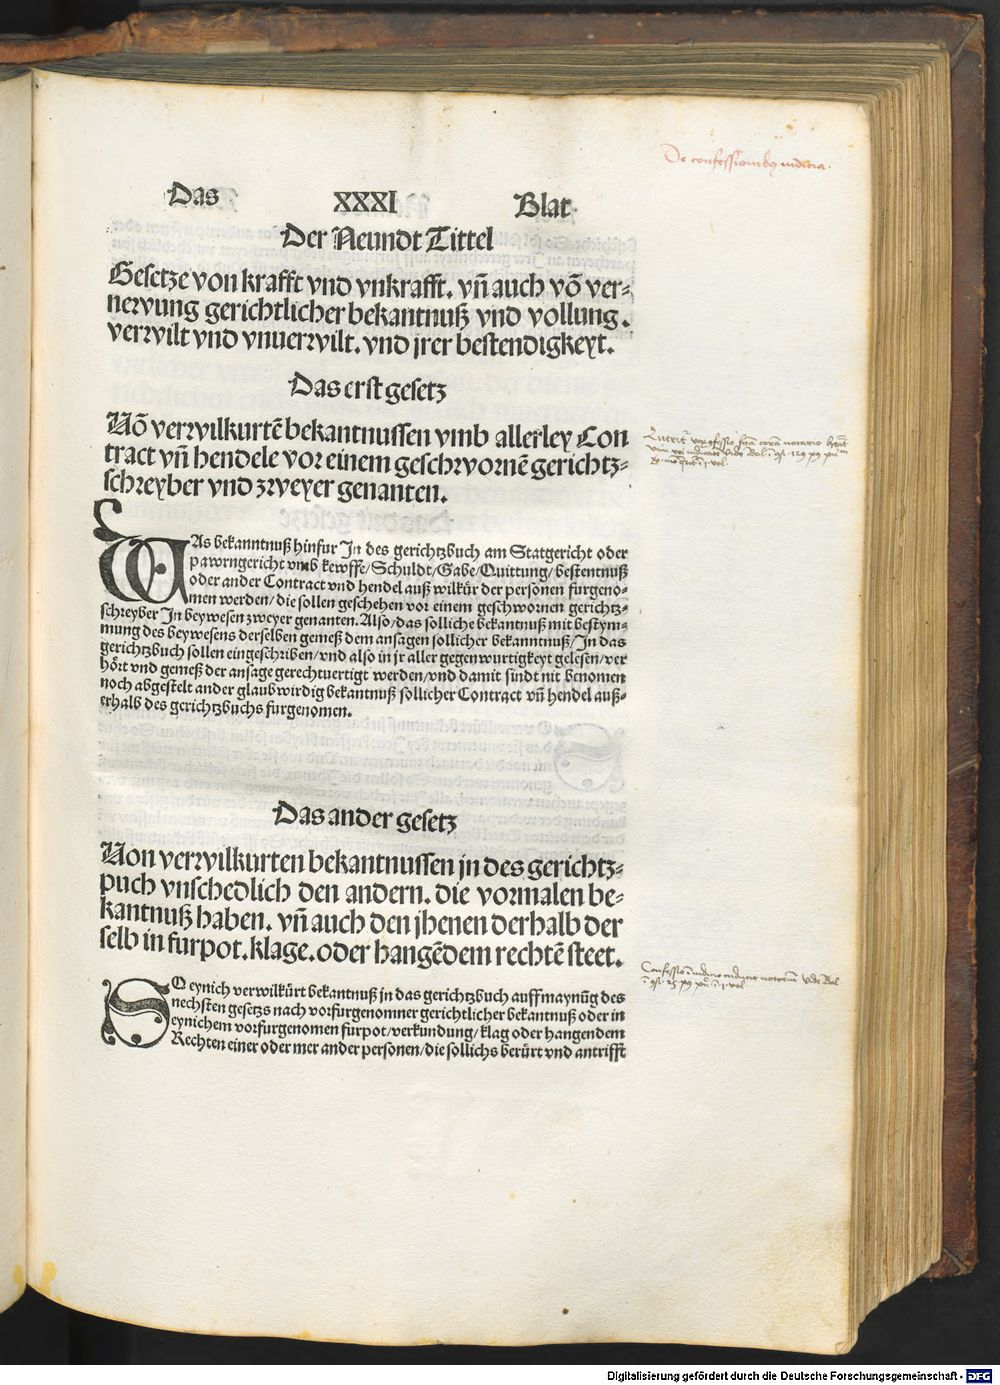 De confessionibus iudicia.
Das XXXI Blat
Der Neundt Tittel
Gesetze von krafft vnd vnkrafft. vñ auch võ ver⸗
newung gerichtlicher bekantnuß vnd vollung.
verwilt vnd vnuerwilt. vnd jrer bestendigkeyt.
Das erst gesetz
Uõ verwilkurtẽ bekantnussen vmb allerley Con
tract vñ hendele vor einem geschwornẽ gerichtz⸗
schreyber vnd zweyer genanten.
WAs bekanntnuß hinfur Jn des gerichtzbuch am Statgericht oder
pawrngericht vmb kewffe/Schuldt/Gabe/Quittung/bestentnuß
oder ander Contract vnd hendel auß wilkür der personen furgeno⸗
men werden/die sollen geschehen vor einem geschwornen gerichtz⸗
schreyber Jn beywesen zweyer genanten. Also/das solliche bekantnuß mit bestym⸗
mung des beywesens derselben gemeß dem ansagen sollicher bekanntnuß/Jn das
gerichtzbuch sollen eingeschriben/vnd also in jr aller gegenwurtigkeyt gelesen/ver
hört vnd gemeß der ansage gerechtuertigt werden/vnd damit sindt nit benomen
noch abgestelt ander glaubwirdig bekantnuß sollicher Contract vñ hendel auß⸗
erhalb des gerichtzbuchs furgenomen.
Das ander gesetz
Uon verwilkurten bekantnussen jn des gerichtz⸗
puch vnschedlich den andern. die vormalen be⸗
kantnuß haben. vñ auch den jhenen derhalb der
selb in furpot. klage. oder hangẽdem rechtẽ steet.
SO eynich verwilkürt bekantnuß in das gerichtzbuch auff maynũg des
nechsten gesetzs nach vorfurgenomner gerichtlicher bekantnuß oder in
eynichem vorfurgenomen furpot/verkundung/klag oder hangendem
Rechten einer oder mer ander personen/die sollichs berürt vnd antrifft
Digitalisierung gefördert durch die Deutsche Forschungsgemeinschaft - DFG